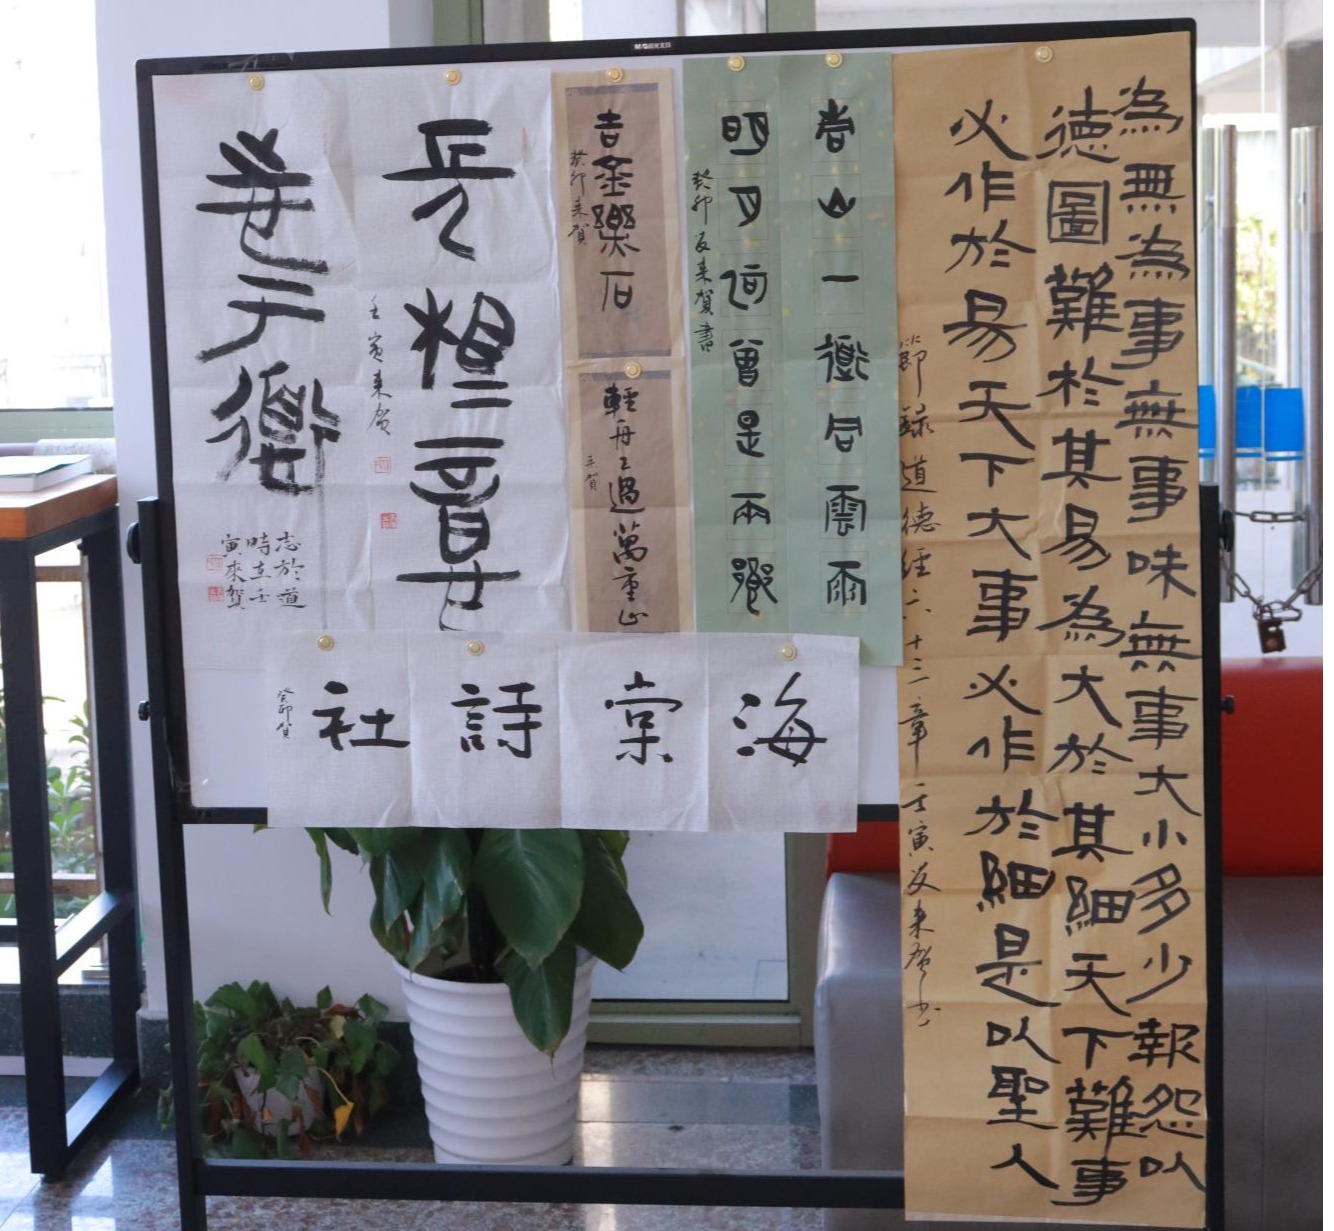 為無為事無事味無事大小多少報怨以
德圖難於其易為大於其細天下難事
必作於易天下大事必作於細是以聖人
節錄道德經六十三章壬寅来賀书
青山一道同雲雨
明月何曾是兩鄉
癸卯来賀書
吉金樂石
癸卯来賀
輕舟已過萬重山
来賀
壬寅来賀
志於道
時在壬
寅來賀
海棠詩社
癸卯賀